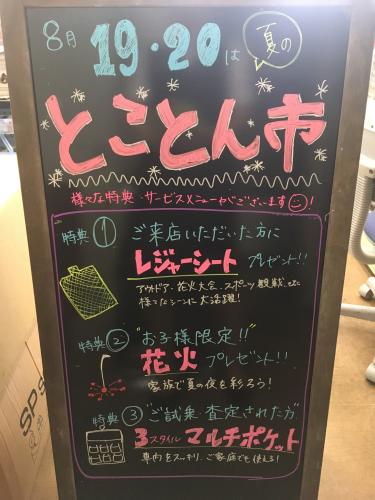 8月 19・20は 夏の
とことん市
様々な特典・サービスメニューがございます!
特典① ご来店いただいた方に
レジャーシート プレゼント!!
アウトドア・花火大会・スポーツ観戦など
様々なシーンに大活躍!
特典② "お子様限定!!"
花火 プレゼント!!
家族で夏の夜を彩ろう!
特典③ "ご試乗・査定された方"
3スタイル マルチポケット
車内をスッキリ、ご家庭でも使える!